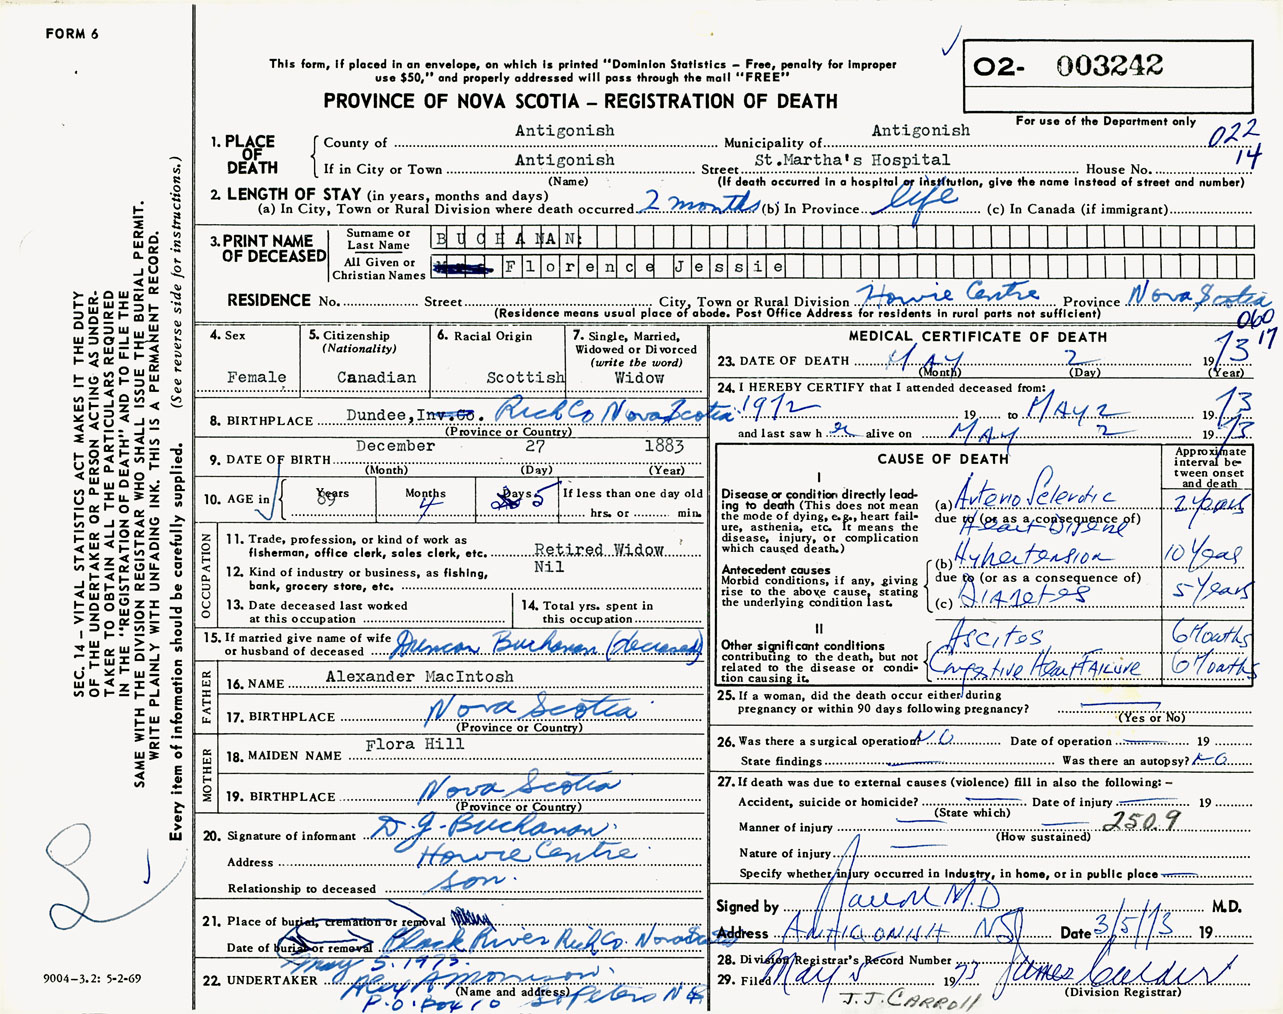 FORM 6
This form, if placed in an envelope, on which is printed "Dominion Statistics – Free, penalty for improper
use $50," and properly addressed will pass through the mail "FREE"
PROVINCE OF NOVA SCOTIA – REGISTRATION OF DEATH
O2- 003242
For use of the Department only
022
14
1. PLACE OF DEATH
County of Antigonish Municipality of Antigonish
If in City or Town Antigonish Street St.Martha's Hospital House No.
(Name) (If death occurred in a hospital or institution, give the name instead of street and number)
2. LENGTH OF STAY (in years, months and days)
(a) In City, Town or Rural Division where death occurred 2 months (b) In Province life (c) In Canada (if immigrant)
3. PRINT NAME OF DECEASED
Surname or Last Name BUCHANAN
All Given or Christian Names Florence Jessie
RESIDENCE No. Street City, Town or Rural Division Howie Centre Province Nova Scotia
(Residence means usual place of abode. Post Office Address for residents in rural parts not sufficient)
060
17
4. Sex Female
5. Citizenship (Nationality) Canadian
6. Racial Origin Scottish
7. Single, Married, Widowed or Divorced (write the word) Widow
8. BIRTHPLACE Dundee, Inv.Co. Rich Co Nova Scotia
(Province or Country)
9. DATE OF BIRTH December 27 1883
(Month) (Day) (Year)
10. AGE in Years 89 Months 4 Days 5 If less than one day old
hrs. or min.
OCCUPATION
11. Trade, profession, or kind of work as
fisherman, office clerk, sales clerk, etc. Retired Widow
12. Kind of industry or business, as fishing, Nil
bank, grocery store, etc.
13. Date deceased last worked
at this occupation
14. Total yrs. spent in
this occupation
15. If married give name of wife
or husband of deceased Duncan Buchanan (deceased)
FATHER
16. NAME Alexander MacIntosh
17. BIRTHPLACE Nova Scotia
(Province or Country)
MOTHER
18. MAIDEN NAME Flora Hill
19. BIRTHPLACE Nova Scotia
(Province or Country)
20. Signature of informant D. J. Buchanan
Address Howie Centre
Relationship to deceased son.
21. Place of burial, cremation or removal
Date of burial or removal Black River Rich Co. Nova Scotia
May 5, 1973.
22. UNDERTAKER Alex A Morrison
(Name and address)
P.O. Box 10 St Peters N S
MEDICAL CERTIFICATE OF DEATH
23. DATE OF DEATH MAY 2 1973
(Month) (Day) (Year)
24. I HEREBY CERTIFY that I attended deceased from:
1972 19 to MAY 2 1973
and last saw h er alive on MAY 2 1973
CAUSE OF DEATH
Approximate interval between onset and death
I
Disease or condition directly leading to death (This does not
mean the mode of dying, e.g., heart failure, asthenia, etc. It means the
disease, injury, or complication
which caused death.)
(a) Arterio Sclerotic 2 years
due to (or as a consequence of)
Heart Disease
(b) Hypertension 10 Year
Antecedent causes
Morbid conditions, if any, giving
rise to the above cause, stating
the underlying condition last.
due to (or as a consequence of)
(c) Diabetes 5 Years
II
Other significant conditions
contributing to the death, but not
related to the disease or condition causing it.
Ascites 6 Months
Congestive Heart FAILURE 6 Months
25. If a woman, did the death occur either during
pregnancy or within 90 days following pregnancy?
(Yes or No)
26. Was there a surgical operation? NO Date of operation 19
State findings Was there an autopsy? NO
27. If death was due to external causes (violence) fill in also the following: –
Accident, suicide or homicide? Date of injury 19
(State which)
Manner of injury 250.9
(How sustained)
Nature of injury
Specify whether injury occurred in industry, in home, or in public place
Signed by M.D M.D.
Address ANTIGONISH NS Date 3/5/73 19
28. Division Registrar's Record Number
29. Filed May 5 1973
(Division Registrar)
J.J. CARROLL
SEC. 14 – VITAL STATISTICS ACT MAKES IT THE DUTY
OF THE UNDERTAKER OR PERSON ACTING AS UNDER-
TAKER TO OBTAIN ALL THE PARTICULARS REQUIRED
IN THE "REGISTRATION OF DEATH" AND TO FILE THE
SAME WITH THE DIVISION REGISTRAR WHO SHALL ISSUE THE BURIAL PERMIT.
WRITE PLAINLY WITH UNFADING INK. THIS IS A PERMANENT RECORD.
Every item of information should be carefully supplied. (See reverse side for instructions.)
9004–3.2: 5-2-69